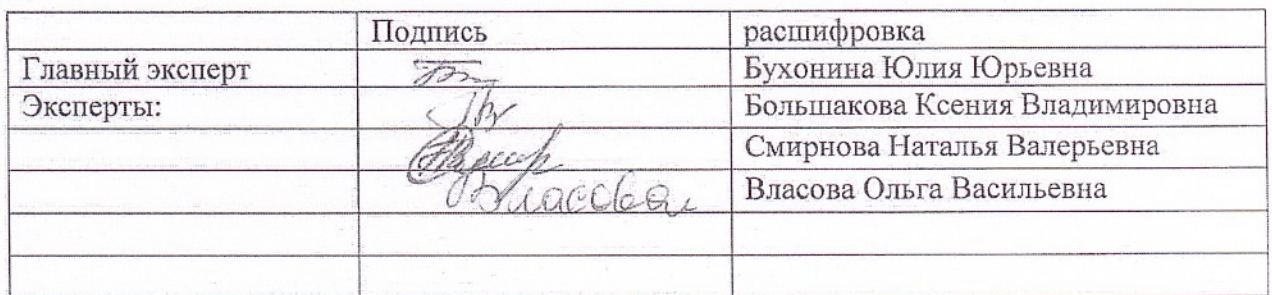 Подпись расшифровка
Главный эксперт Бухонина Юлия Юрьевна
Эксперты: Большакова Ксения Владимировна
Смирнова Наталья Валерьевна
Власова Власова Ольга Васильевна